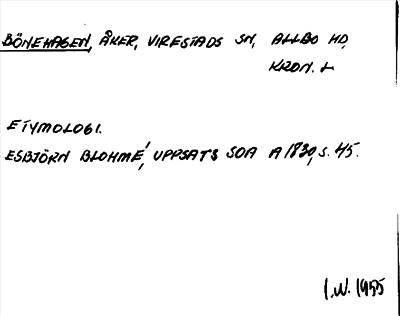 BÖNEHAGEN, ÅKER, VIRESTADS SN, ALLBO HD,
KRON. L
ETYMOLOGI.
ESBJÖRN BLOHMÉ, UPPSATS SOA A 1830, S. 45.
I.W. 1955